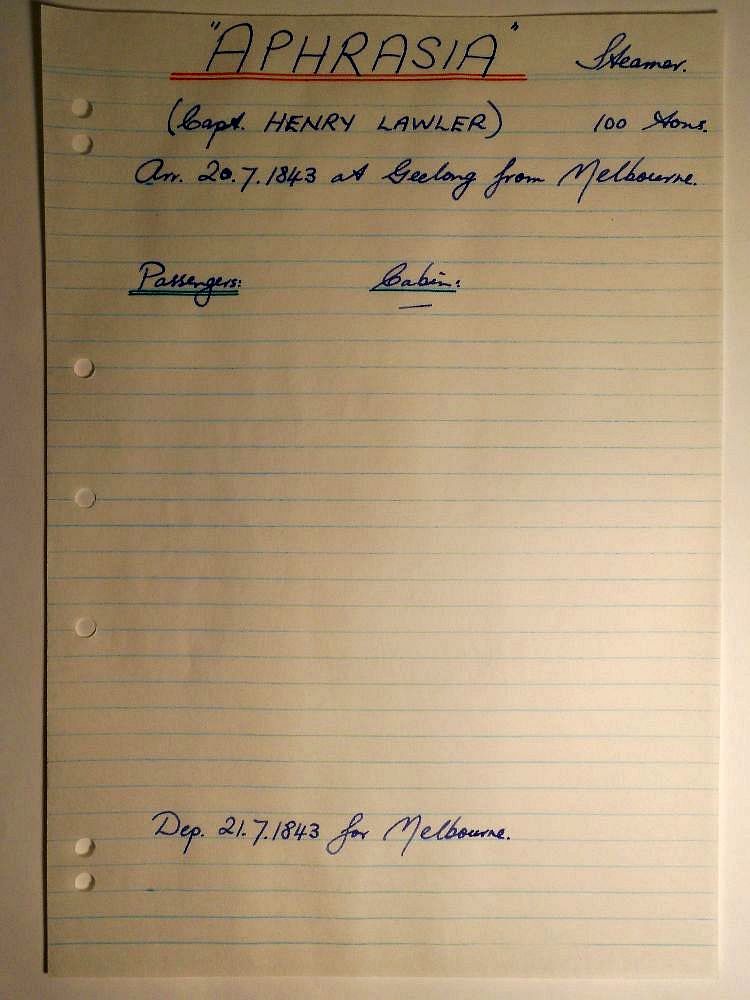 "APHRASIA" Steamer.
(Capt. HENRY LAWLER) 100 tons.
Arr. 20.7.1843 at Geelong from Melbourne.
Passengers: Cabin:
—
Dep. 21.7.1843 for Melbourne.